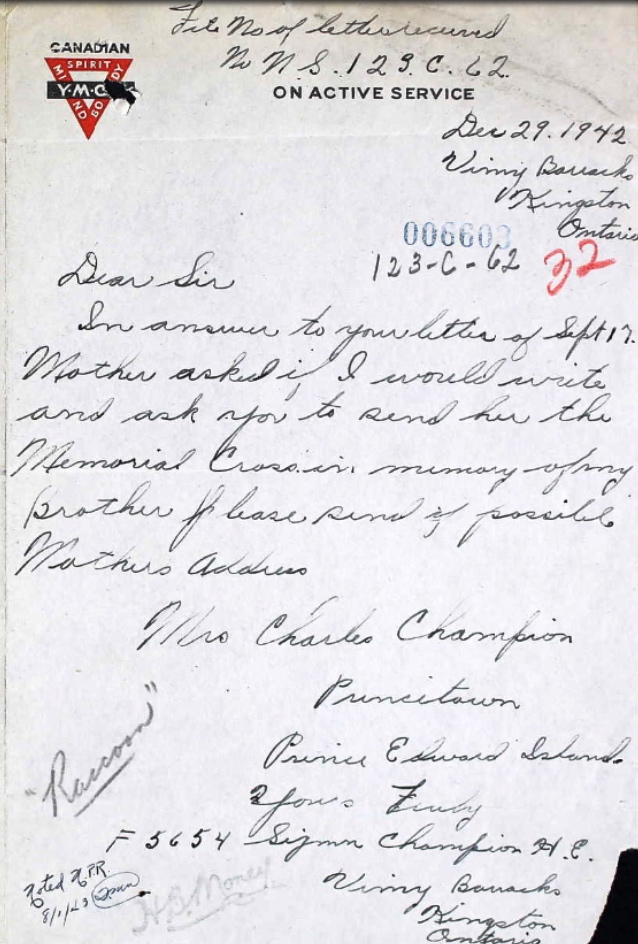 File No of letter received
No N.S. 123.C.62.
CANADIAN
SPIRIT
MIND
BODY
Y.M.C
ON ACTIVE SERVICE
Dec 29.1942
Vimy Barracks
Kingston
Ontario
006603
123-C-62
32
Dear Sir
In answer to your letter of Sept 17.
Mother asked if I would write
and ask you to send her the
Memorial Cross in memory of my
Brother Please send if possible
Mothers Address
Mrs Charles Champion
Princetown
Prince Edward Island
"Raccoon"
Yours Truly
F 5654 Sigmn Champion H.E.
Vimy Barracks
Kingston
Ontario
Noted N.P.R.
8/1/43
Money